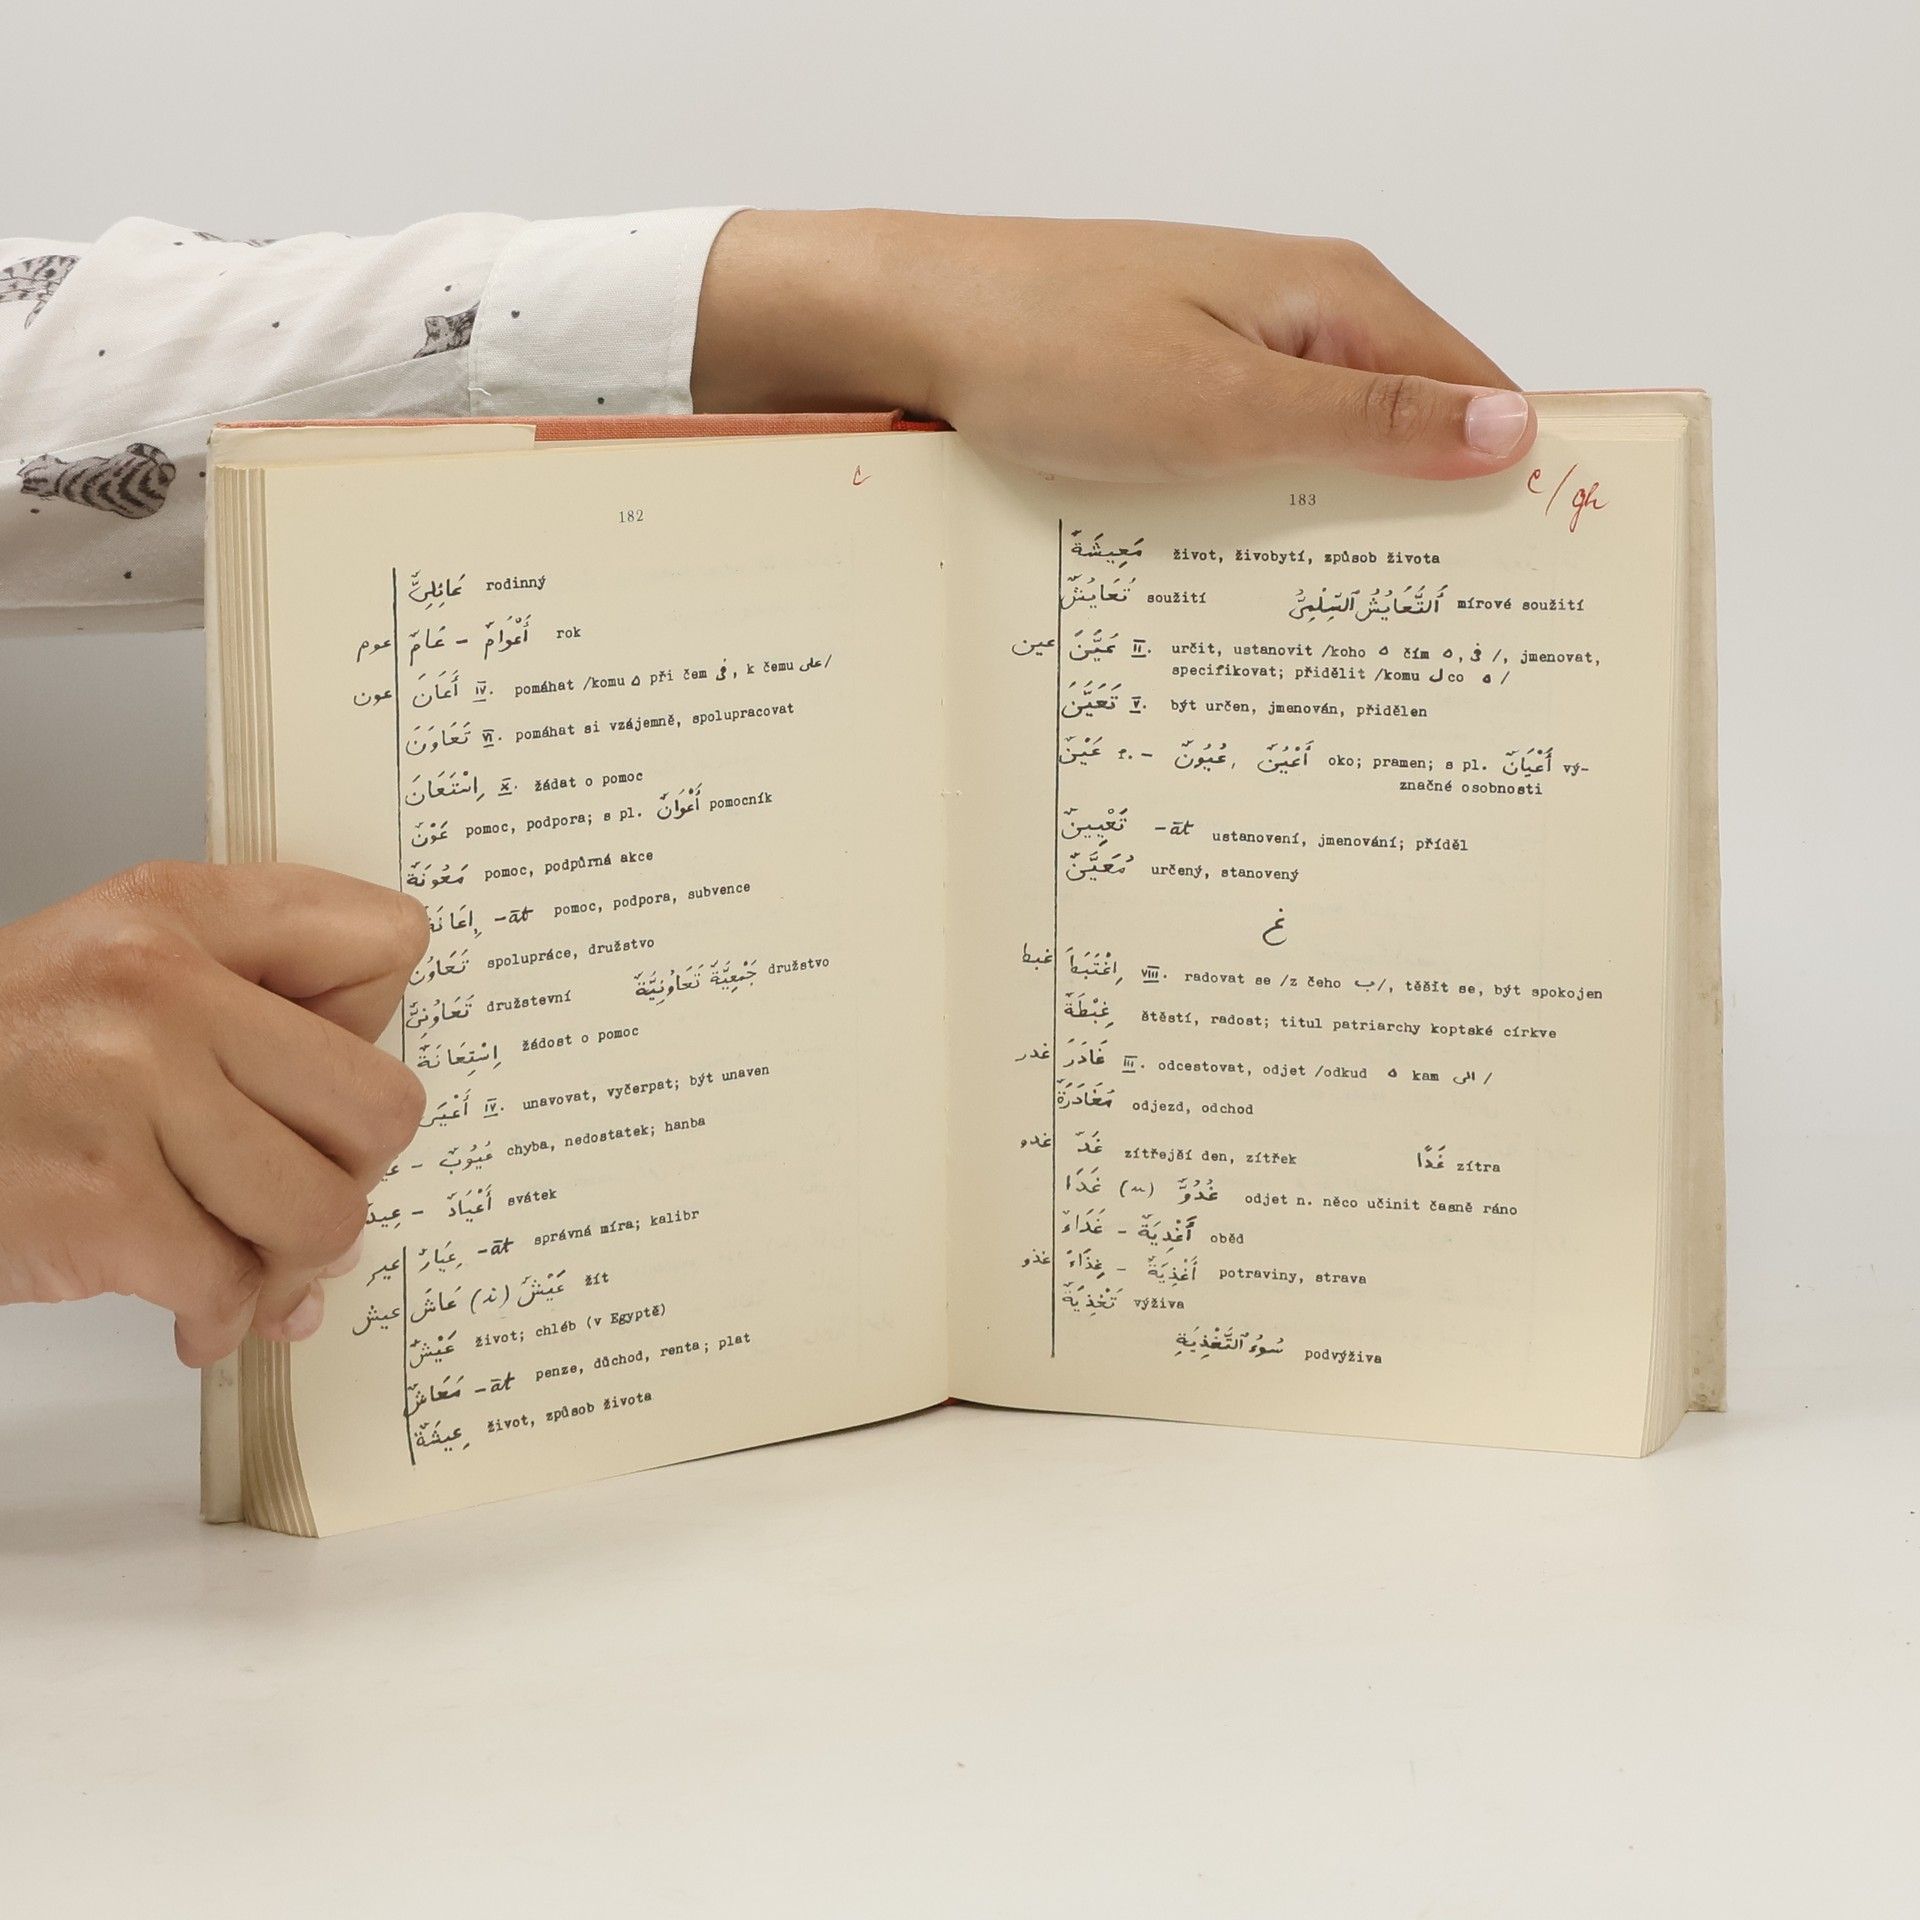 c
182
عَائِلِيٌّ rodinný
عوم عَامٌ – أَعْوَامٌ rok
عون أَعَانَ IV. pomáhat /komu ه při čem فى, k čemu على/
تَعَاوَنَ VI. pomáhat si vzájemně, spolupracovat
اِسْتَعَانَ X. žádat o pomoc
عَوْنٌ pomoc, podpora; s pl. أَعْوَانٌ pomocník
مَعُونَةٌ pomoc, podpůrná akce
إِعَانَةٌ -āt pomoc, podpora, subvence
تَعَاوُنٌ spolupráce, družstvo
تَعَاوُنِيٌّ družstevní جَمْعِيَّةٌ تَعَاوُنِيَّةٌ družstvo
اِسْتِعَانَةٌ žádost o pomoc
أَعْيَى IV. unavovat, vyčerpat; být unaven
– عُيُوبٌ chyba, nedostatek; hanba
عِيدٌ – أَعْيَادٌ svátek
عير عِيَارٌ -āt správná míra; kalibr
عيش عَاشَ (i) عَيْشٌ žít
عَيْشٌ život; chléb (v Egyptě)
مَعَاشٌ -āt penze, důchod, renta; plat
عِيشَةٌ život, způsob života
c/gh
183
مَعِيشَةٌ život, živobytí, způsob života
تَعَايُشٌ soužití اَلتَّعَايُشُ ٱلسِّلْمِيُّ mírové soužití
عين عَيَّنَ II. určit, ustanovit /koho ه čím ه, فى /, jmenovat,
specifikovat; přidělit /komu ل co ه /
تَعَيَّنَ V. být určen, jmenován, přidělen
عَيْنٌ f. – عُيُونٌ, أَعْيُنٌ oko; pramen; s pl. أَعْيَانٌ vý-
značné osobnosti
تَعْيِينٌ -āt ustanovení, jmenování; příděl
مُعَيَّنٌ určený, stanovený
غ
غبط اِغْتَبَطَ VIII. radovat se /z čeho ب/, těšit se, být spokojen
غِبْطَةٌ štěstí, radost; titul patriarchy koptské církve
غدر غَادَرَ III. odcestovat, odjet /odkud ه kam الى /
مُغَادَرَةٌ odjezd, odchod
غدو غَدٌ zítřejší den, zítřek غَدًا zítra
غَدَا (u) غُدُوٌّ odjet n. něco učinit časně ráno
غَدَاءٌ – أَغْدِيَةٌ oběd
غذو غِذَاءٌ – أَغْذِيَةٌ potraviny, strava
تَغْذِيَةٌ výživa
سُوءُ ٱلتَّغْذِيَةِ podvýživa